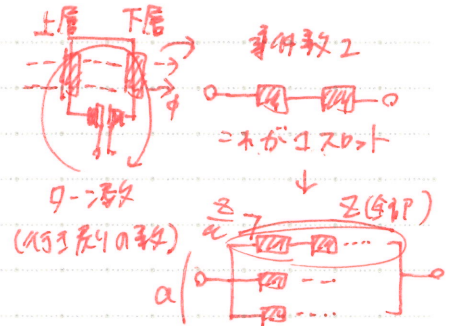 上層 下層
φ
ターン数
(行き戻りの数)
事件数2
これが1スロット
↓
Z/a
Z(全部)
a